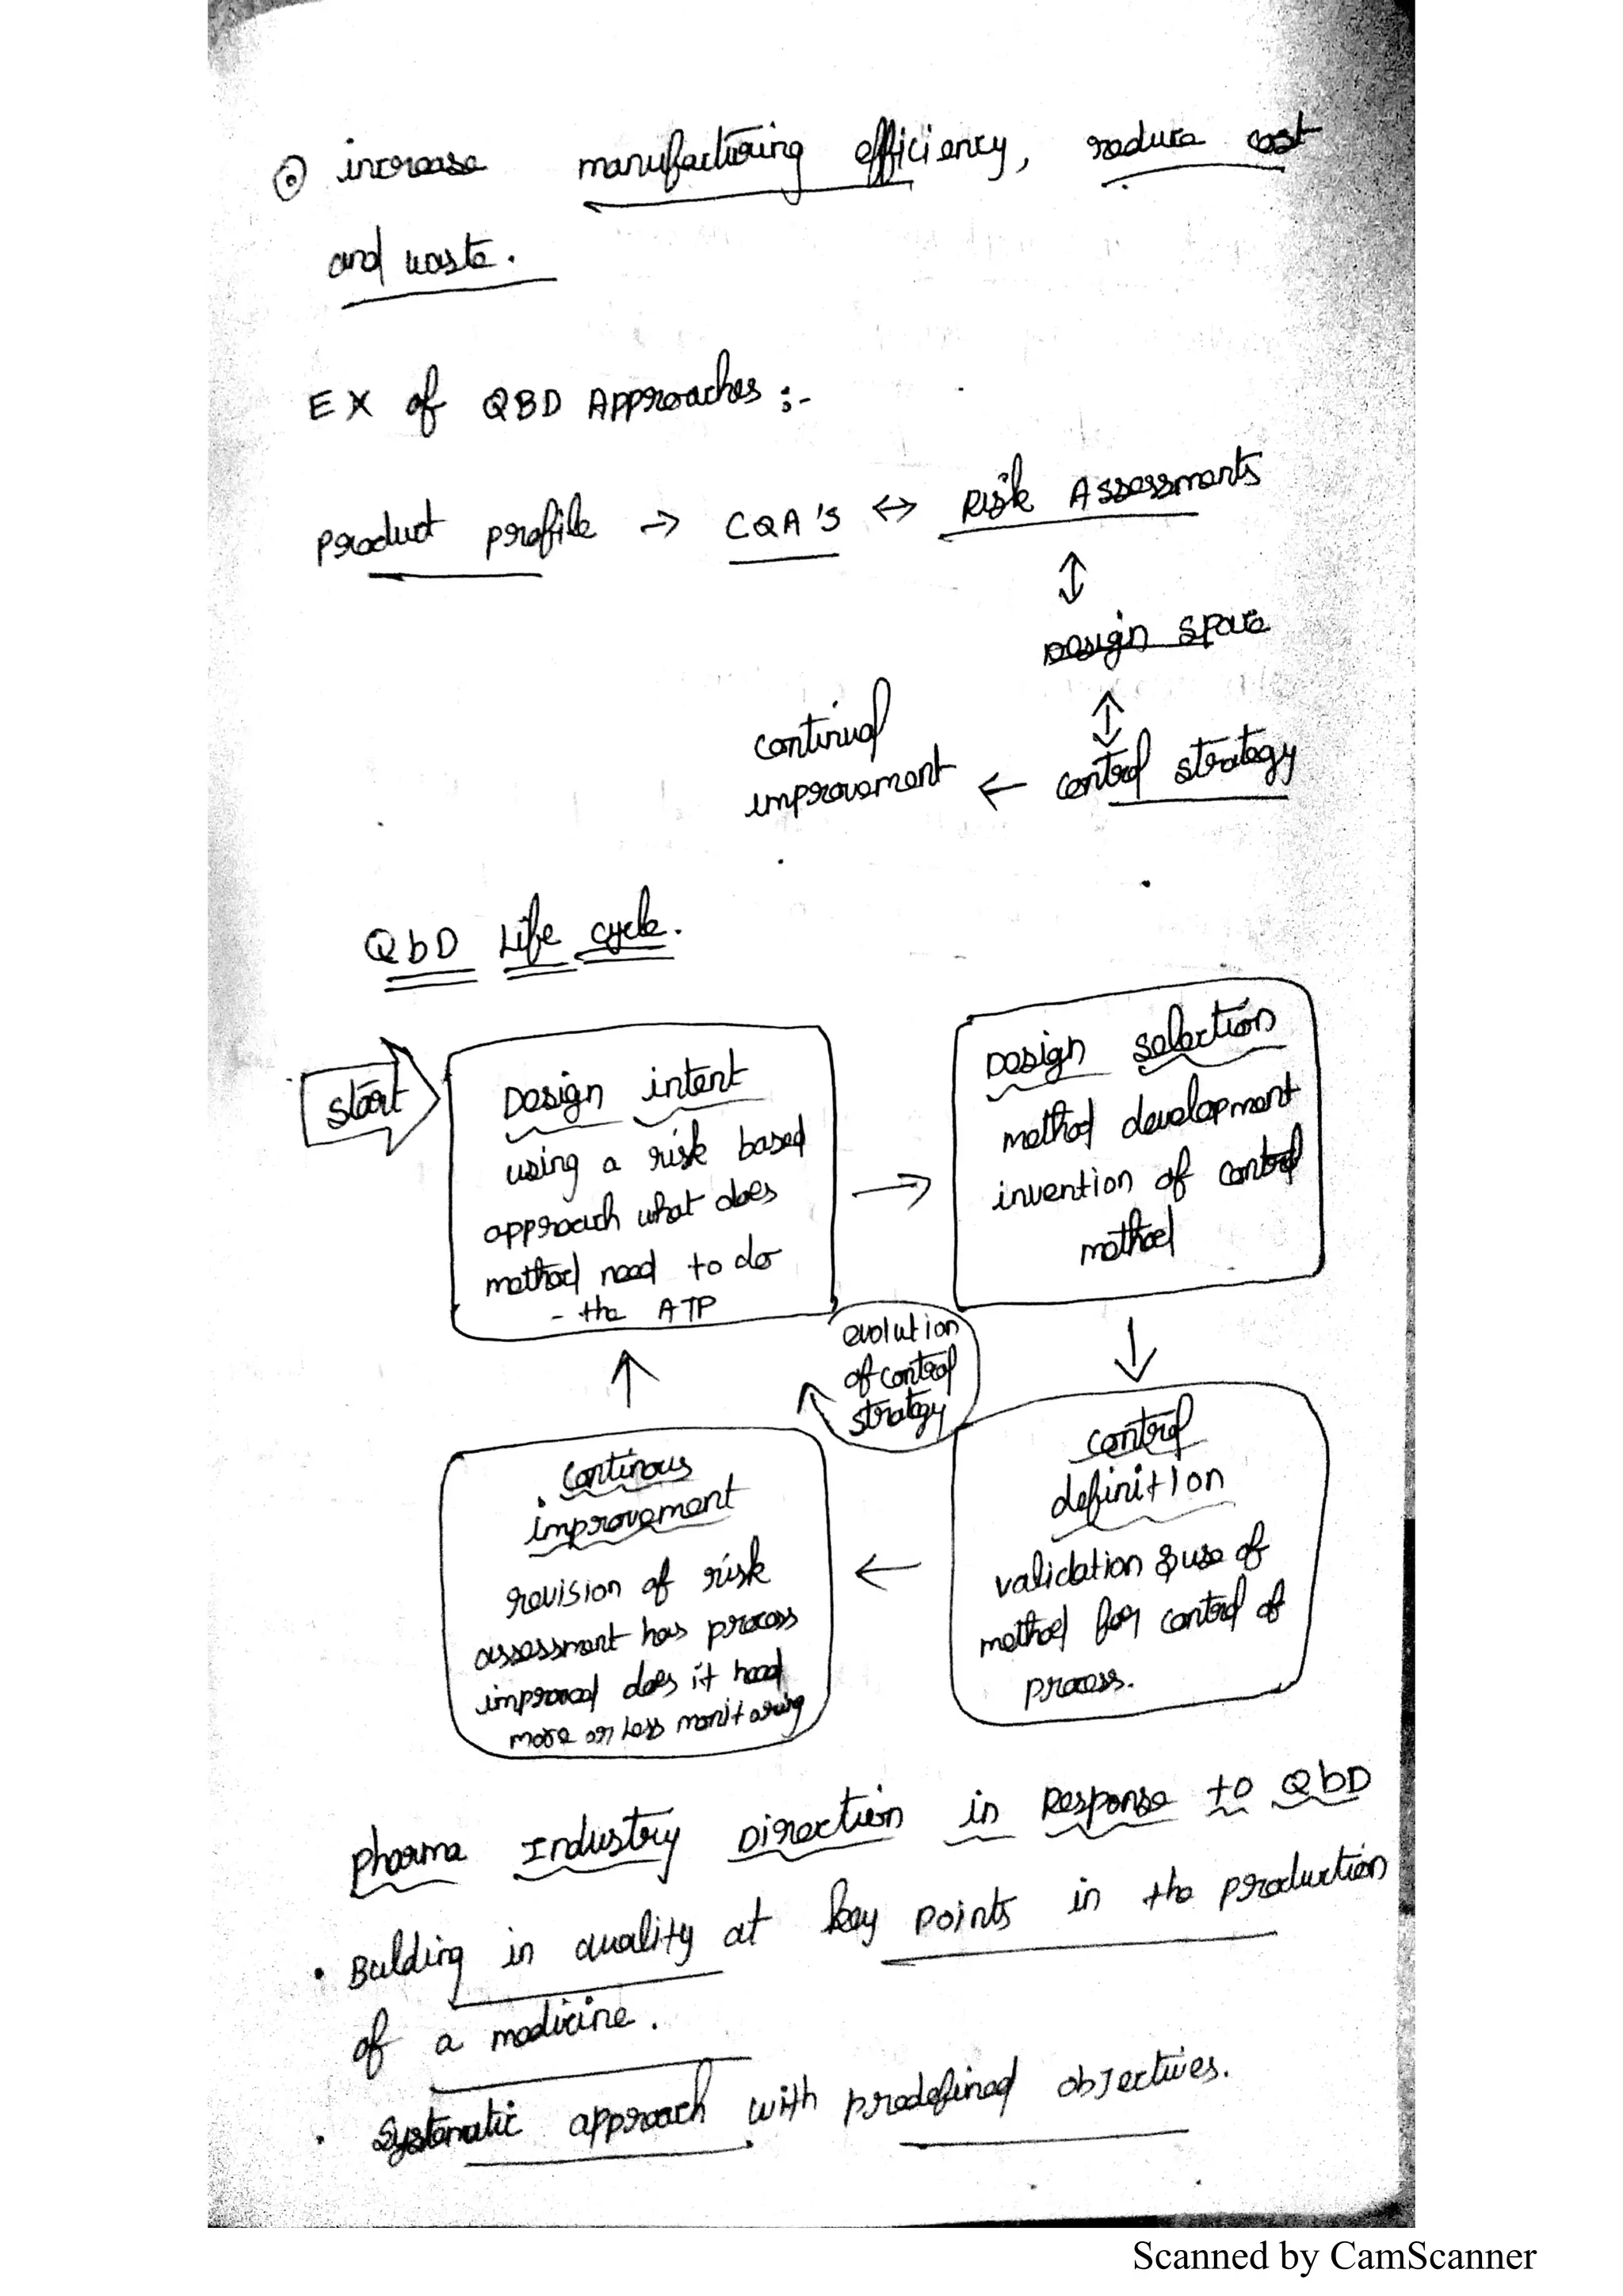 ⊙ increase manufacturing efficiency, reduce cost
and waste.
EX of QBD Approaches :-
product profile → CQA's ↔ Risk Assessments
↕
Design space
↕
continual
improvement ← control strategy
QbD Life cycle.
start
Design intent
using a risk based
approach what does
method need to do
- the ATP
→
Design selection
method development
invention of control
method
↓
evolution
of control
strategy
control
definition
validation & use of
method for control of
process.
←
continous
improvement
revision of risk
assessment has process
improved does it need
more or less monitoring
↑
pharma Industry Direction in Response to QbD
• Building in quality at key points in the production
of a medicine.
• Systematic approach with predefined objectives.
Scanned by CamScanner